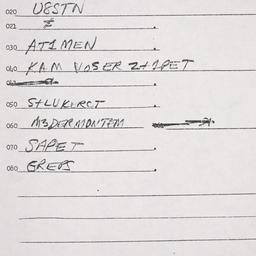 020 U8STN
021
030 AT1MEN
040 KAM VOSER Z+1PET
050 S+LUKERCT
060 M3DERMONTEM
070 SAPET
080 GREPS